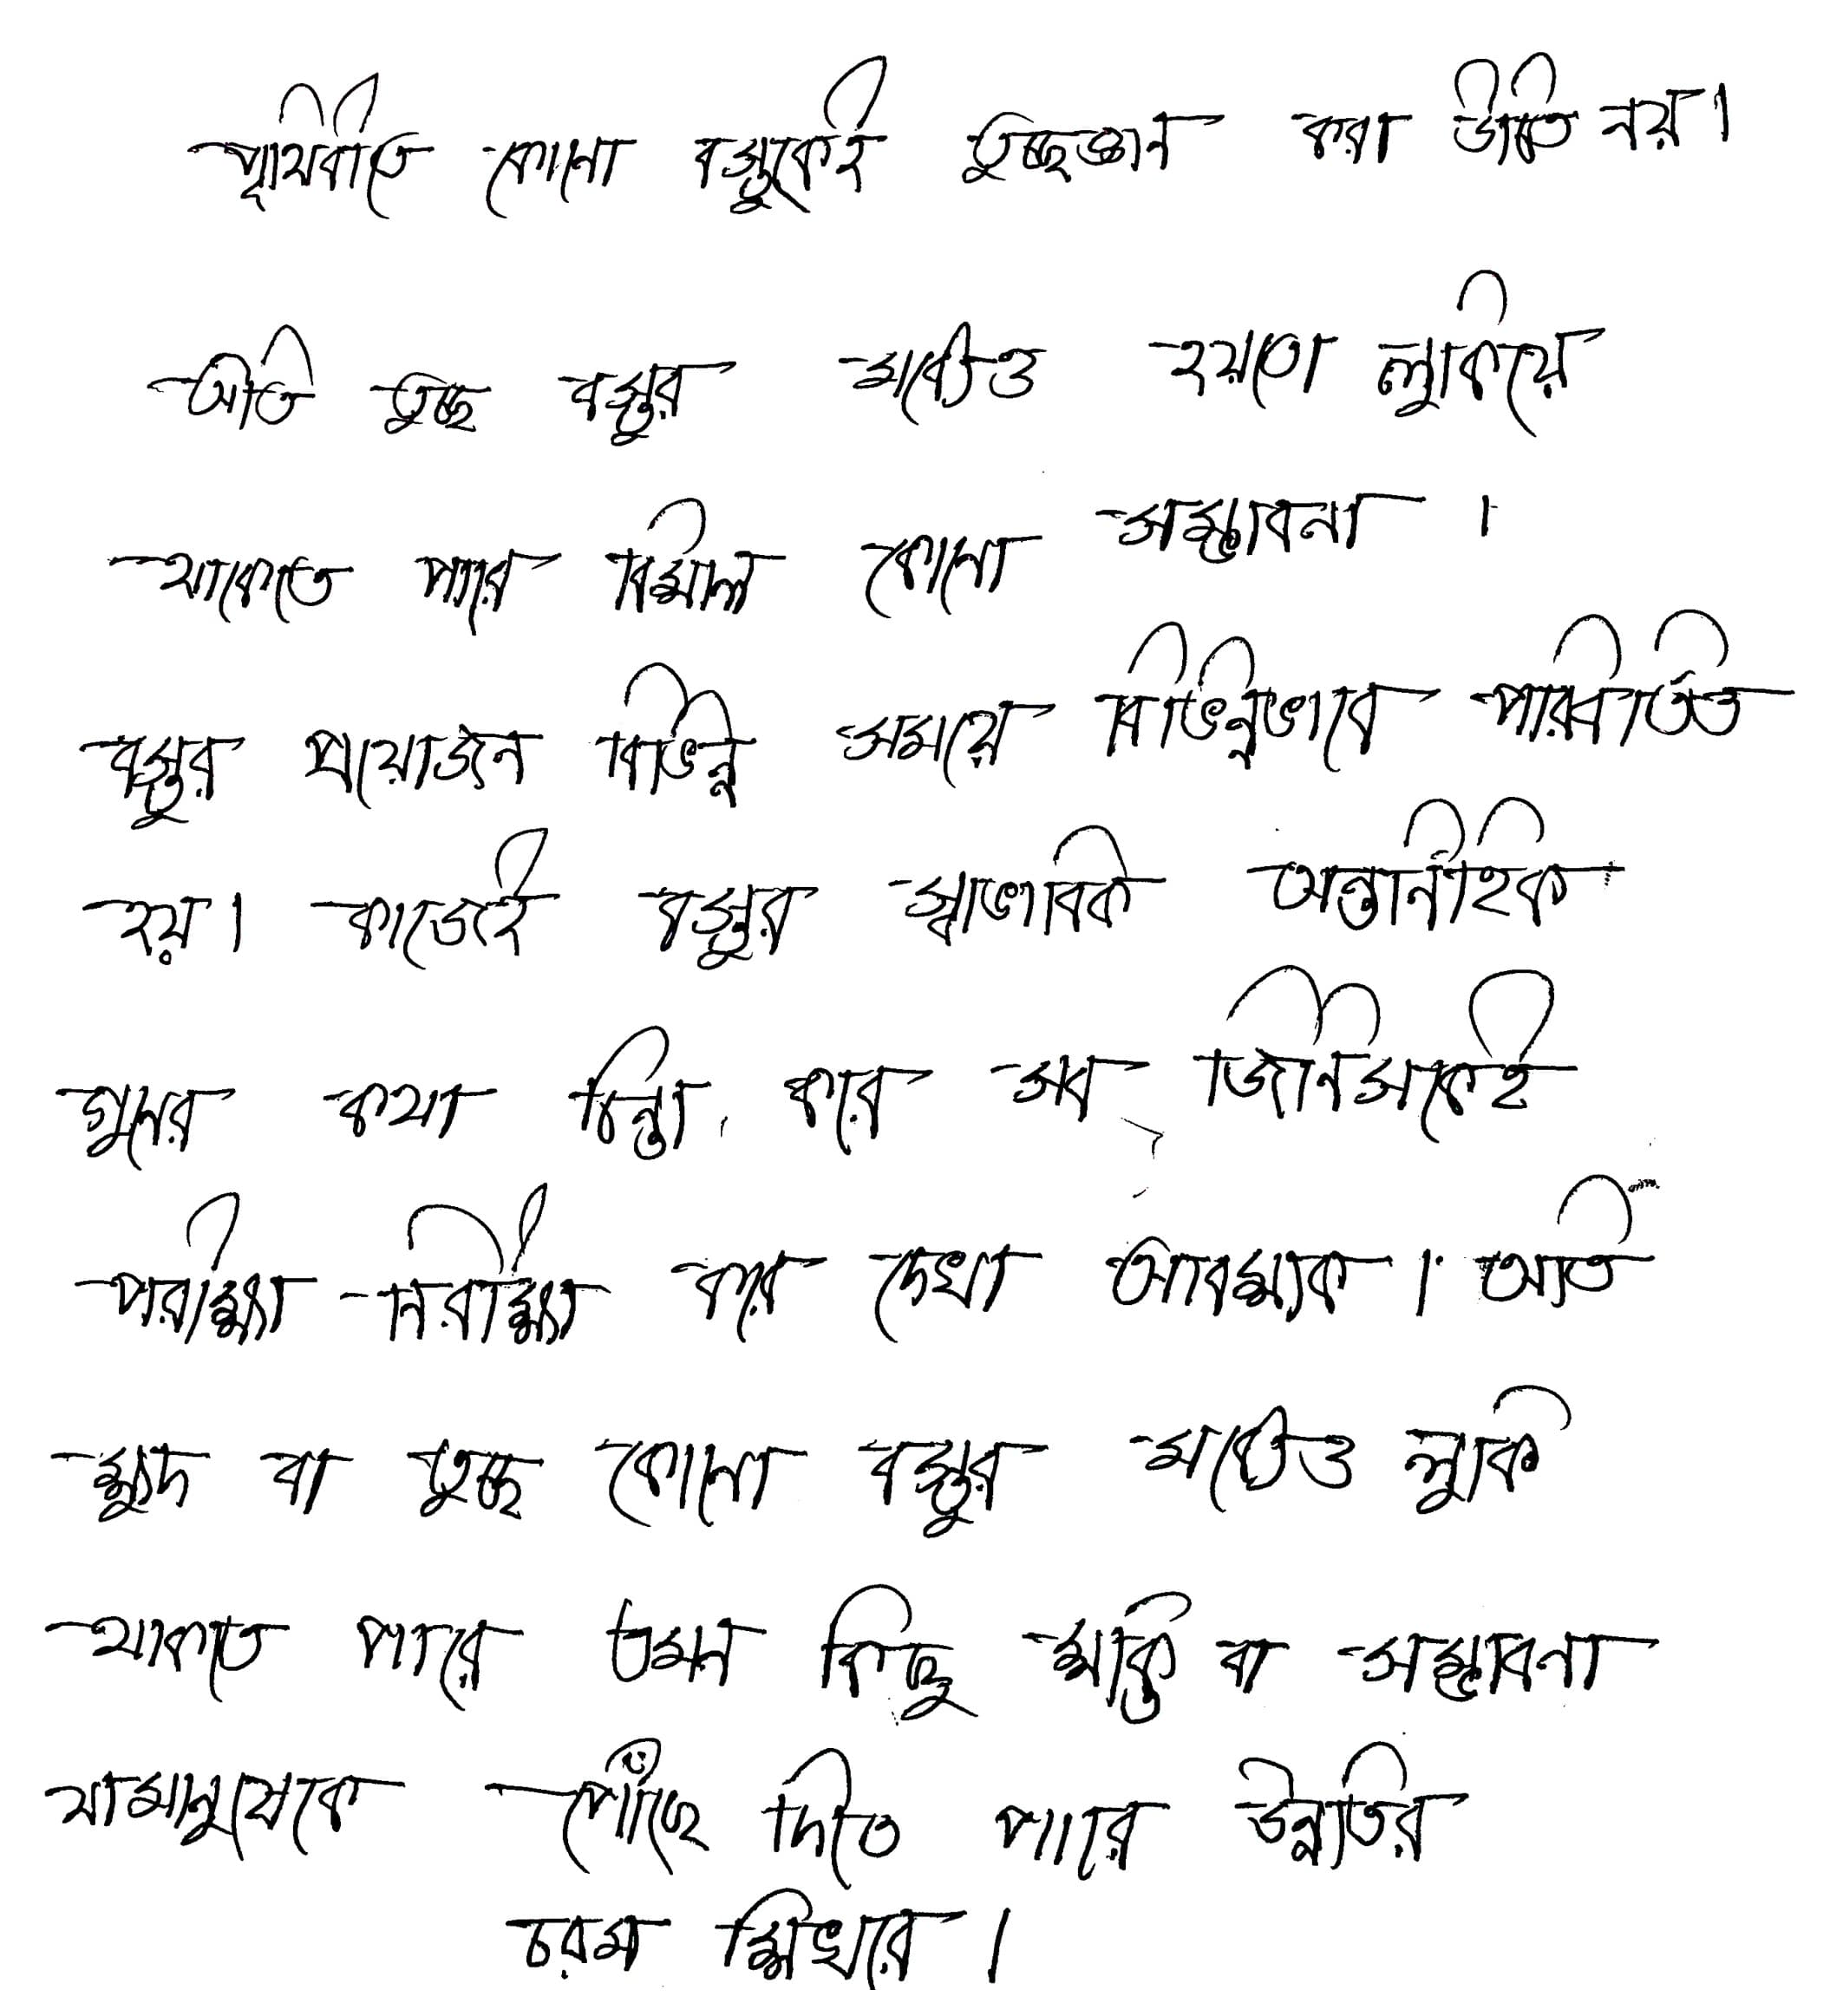 পৃথিবীতে কোনো বস্তুকেই তুচ্ছজ্ঞান করা উচিত নয়।
অতি তুচ্ছ বস্তুর মধ্যেও হয়তো লুকিয়ে
থাকতে পারে বিশাল কোনো সম্ভাবনা।
বস্তুর প্রয়োজন বিভিন্ন সময়ে বিভিন্নভাবে পরিবর্তিত
হয়। কাজেই বস্তুর স্বাভাবিক অন্তর্নিহিক
গুনের কথা চিন্তা করে সব জিনিসকেই
পরীক্ষা-নিরীক্ষা করে দেখা আবশ্যক। অতি
ক্ষুদ্র বা তুচ্ছ কোনো বস্তুর মধ্যেও লুকি
থাকতে পারে এমন কিছু শক্তি বা সম্ভাবনা
যা মানুষকে পৌঁছে দিতে পারে উন্নতির
চরম শিখরে।